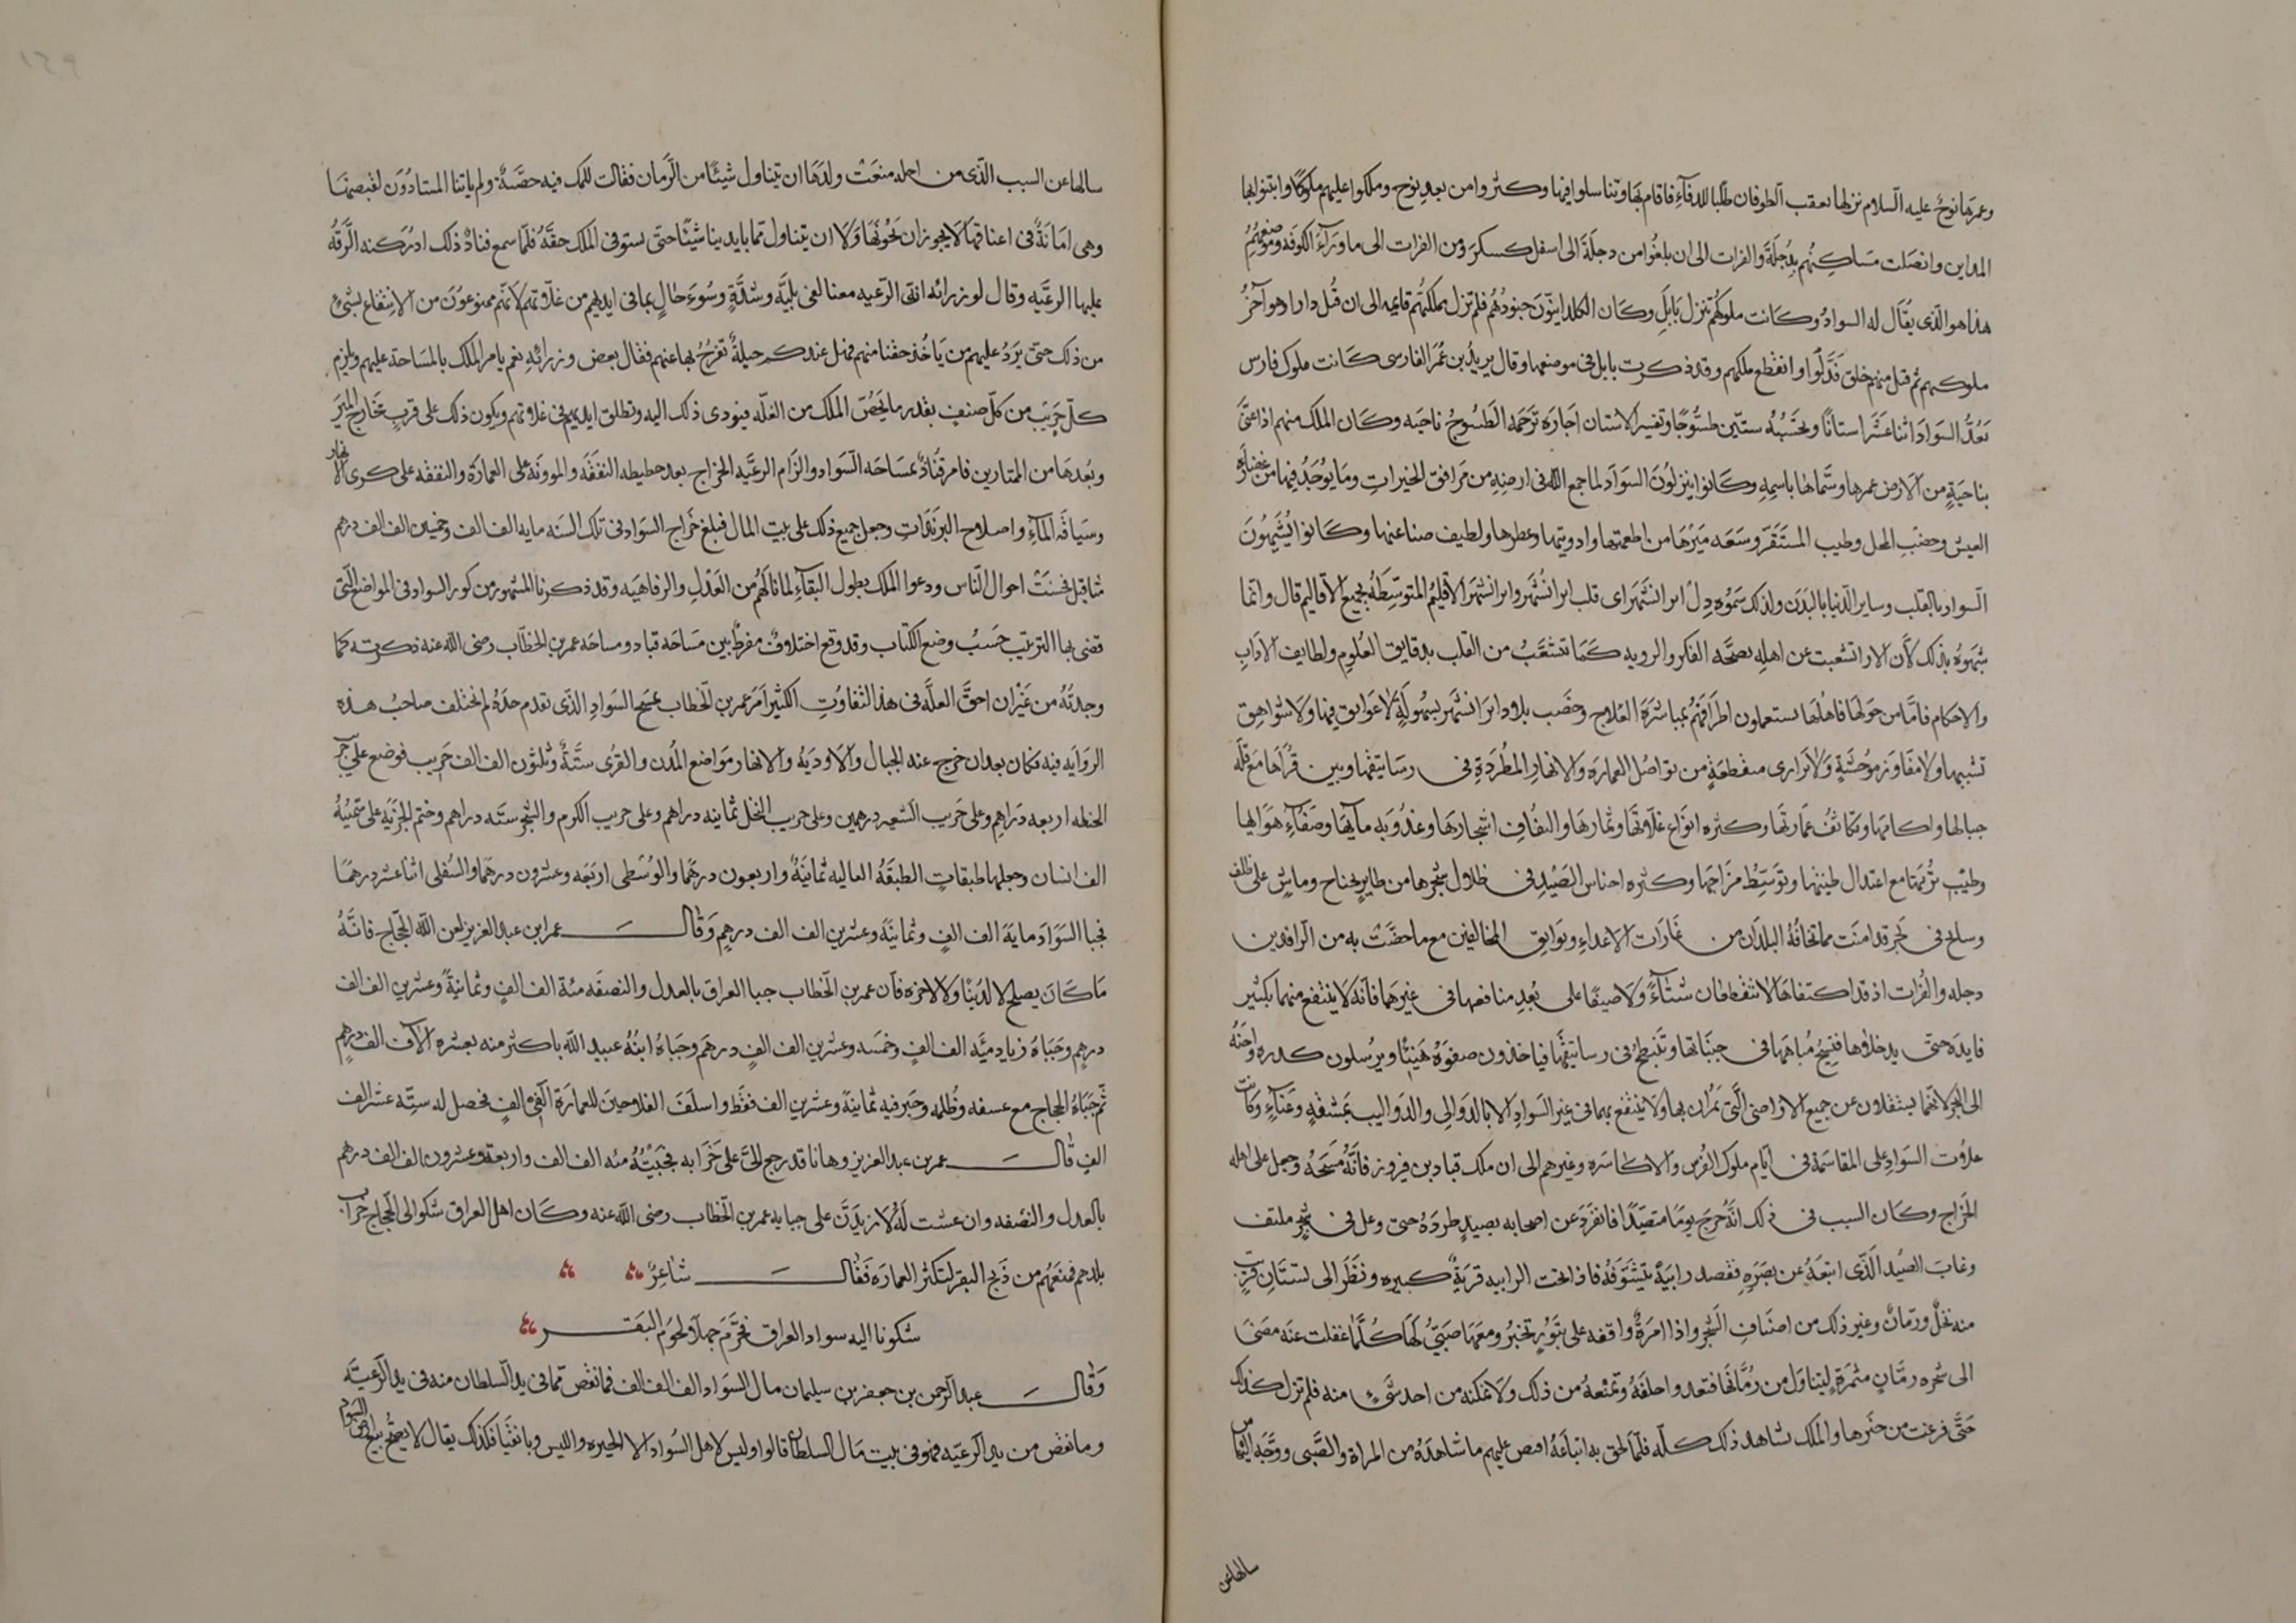 وعمرها نوح عليه السلام نزلها بعقب الطوفان طلبا للدفاء فاقام بها وتناسلوا فيها وكثروا من بعد نوح وملكوا عليهم ملوكا وابتنوا بها
المداين واتصلت مساكنهم بدجلة والفرات الى ان بلغوا من دجلة الى اسفل كسكر ومن الفرات الى ما وراء الكوفه وموضعهم
هذا هو الذى يقال له السواد وكانت ملوكهم تنزل بابل وكان الكلدانيون جنودهم فلم تزل مملكتهم قايمه الى ان قتل دارا وهو آخر
ملوكهم ثم قتل منهم خلق فذلوا وانقطع ملكهم وقد ذكرت بابل فى موضعها وقال يزيد بن عمر الفارسى كانت ملوك فارس
تعد السواد اثنا عشر استانا وتحسبه ستين طسوجا وتفسير الاستان اجاره وترجمه الطسوج ناحيه وكان الملك منهم اذا عنى
بناحية من الارض عمرها وسماها باسمه وكانوا ينزلون السواد لما جمع الله فى ارضه من مرافق الخيرات وما يوجد فيها من غضاره
العيش وخصب المحل وطيب المستقر وسعه ميرها من اطعمتها وادويتها وعطرها ولطيف صناعتها وكانوا يشبهون
السواد بالقلب وساير الدنيا بالبدن ولذلك سموه دل ايرانشهر اى قلب ايرانشهر وايرانشهر الاقليم المتوسطه بجميع الاقاليم قال وانما
شبهوه بذلك لان الارا تشعبت عن اهله بصحه الفكر والرويه كما تتشعب من القلب بدقايق العلوم ولطايف الاداب
والاحكام فاما من حولها فاهلها يستعملون اطرافهم بمباشره العلاج وخصب بلاد ايرانشهر بسهولة لا عوايق فيها ولا شواهق
تشينها ولا مفاوز موحشة ولا برارى منقطعة من تواصل العماره والانهار المطردة فى رساتيقها وبين قراها مع قله
جبالها واكامها وتكاثف عمارتها وكثره انواع غلاتها وثمارها والتفاف اشجارها وعذوبه مايها وصفاء هوايها
وطيب تربتها مع اعتدال طينتها وتوسط مزاجها وكثره اجناس الصيد فى ظلال شجرها من طاير بجناح وماش على ظلف
وسابح فى بحر قد امنت مما تخافه البلدان من غارات الاعداء وبوايق المخالفين مع ما خصت به من الرافدين
دجله والفرات اذ قد اكتنفاها لا ينقطعان شتاء ولا صيفا على بعد منافعهما فى غيرهما فانه لا ينتفع منهما بكثير
فايده حتى يدخلاها فتسيح مياههما فى جنباتها وتنبطح فى رساتيقها فياخذون صفوه هنيئا ويرسلون كدره واجنه
الى البحر لانهما يشتغلان عن جميع الاراضى التى يمران بها ولا ينتفع بهما فى غير السواد الا بالدوالى والدواليب بمشقة وعناء وكانت
غلات السواد على المقاسمة فى ايام ملوك الفرس والاكاسره وغيرهم الى ان ملك قباد بن فيروز فانه مسحه وجعل على اهله
الخراج وكان السبب فى ذلك انه خرج يوما متصيدا فانفرد عن اصحابه بصيد طرده حتى وغل فى شجر ملتف
وغاب الصيد الذى اتبعه عن بصره فقصد رابية يتشوفه فاذا تحت الرابيه قرية كبيره ونظر الى بستان قريب
منه نخل ورمان وغير ذلك من اصناف الشجر واذا امرة واقفه على تنور تخبز ومعها صبى لها كلما غفلت عنه مضى
الى شجره رمان مثمرة ليتناول من رمانها فتعدوا خلفه وتمنعه من ذلك ولا تمكنه من اخذ شىء منه فلم تزل كذلك
حتى فرغت من خبزها والملك شاهد ذلك كله فلما لحق به اتباعه اقتص عليهم ما شاهده من المراة والصبى ووجه اليها من
سالها عن
سالها عن السبب الذى من اجله منعت ولدها ان يتناول شيئا من الرمان فقالت للملك فيه حصة ولم ياتنا المستادون لقبضها
وهى امانة فى اعناقنا لا يجوز ان نخونها ولا ان يتناول مما بايدينا شيئا حتى يستوفى الملك حقه فلما سمع قباذ ذلك ادركته الرقه
عليها الرعيه وقال لوزرائه ان الرعيه معنا لفى بلية وشدة وسوء حال بما فى ايديهم من غلاتهم لانهم ممنوعون من الانتفاع بشىء
من ذلك حتى يرد عليهم من ياخذ حقنا منهم فهل عندكم حيلة نفرج بها عنهم فقال بعض وزرائه نعم يامر الملك بالمساحة عليهم ويلزم
كل جريب من كل صنف بقدر ما يخص الملك من الغله فيودى ذلك اليه وتطلق ايديهم فى غلاتهم ويكون ذلك على قرب مخارج المير
وبعدها من الممتارين فامر قباذ بمساحه السواد والزام الرعيه الخراج بعد حطيطه النفقه والمؤونه على العمارة والنفقه على كرى الانهار
وسياقه الماء واصلاح البرندات وجعل جميع ذلك على بيت المال فبلغ خراج السواد فى تلك السنه مايه الف الف وخمسين الف الف درهم
مثاقيل فحسنت احوال الناس ودعوا للملك بطول البقاء لما نالهم من العدل والرفاهيه وقد ذكرنا المشهور من كور السواد فى المواضع التى
قضى بها الترتيب حسب وضع الكتاب وقد وقع اختلاف مفرط بين مساحه قباد ومساحه عمر بن الخطاب رضى الله عنه ذكرته كما
وجدته من غير ان احق العلة فى هذا التفاوت الكثير امر عمر بن الخطاب بمسح السواد الذى تقدم حده لم يختلف صاحب هذه
الروايه فيه فكان بعد ان خرج عنه الجبال والاوديه والانهار مواضع المدن والقرى ستة وثلثون الف الف جريب فوضع على جريب
الحنطه اربعه دراهم وعلى جريب الشعير درهمين وعلى جريب النخل ثمانيه دراهم وعلى جريب الكرم والشجر سته دراهم وختم الجزية على ستمئة
الف انسان وجعلها طبقات الطبقة العاليه ثمانية واربعون درهما والوسطى اربعه وعشرون درهما والسفلى اثنا عشر درهما
فجبا السواد ماية الف الف وثمانية وعشرين الف الف درهم وقال عمر ابن عبد العزيز لعن الله الحجاج فانه
ما كان يصلح لا لدنيا ولا لاخره فان عمر بن الخطاب جبا العراق بالعدل والنصفه مئة الف الف وثمانية وعشرين الف الف
درهم وجباه زياد مئة الف الف وخمسه وعشرين الف الف درهم وجباه ابنه عبيد الله باكثر منه بعشره الاف الف درهم
ثم جباه الحجاج مع عسفه وظلمه وجبره ثمانية وعشرين الف الف فقط واسلف الفلاحين للعمارة الفى الف فحصل له ستة عشر الف
الف قال عمر بن عبد العزيز وها انا قد رجع الى على خرابه فجبيته مئه الف الف واربعة وعشرون الف الف درهم
بالعدل والنصفه وان عشت له لازيدن على جبايه عمر بن الخطاب رضى الله عنه وكان اهل العراق شكوا الى الحجاج خراب
بلدهم فمنعهم من ذبح البقر لتكثر العماره فقال شاعر
شكونا اليه سواد العراق فحرم جهلا لحوم البقر
وقال عبد الرحمن بن جعفر بن سليمان مال السواد الف الف الف فما نقص مما فى يد السلطان منه فى يد الرعية
وما نقص من يد الرعيه فهو فى بيت مال السلطان قالوا وليس لاهل السواد الا الحيره والليس وبانقيا فلذلك يقال لا يصح بيع ارض السواد